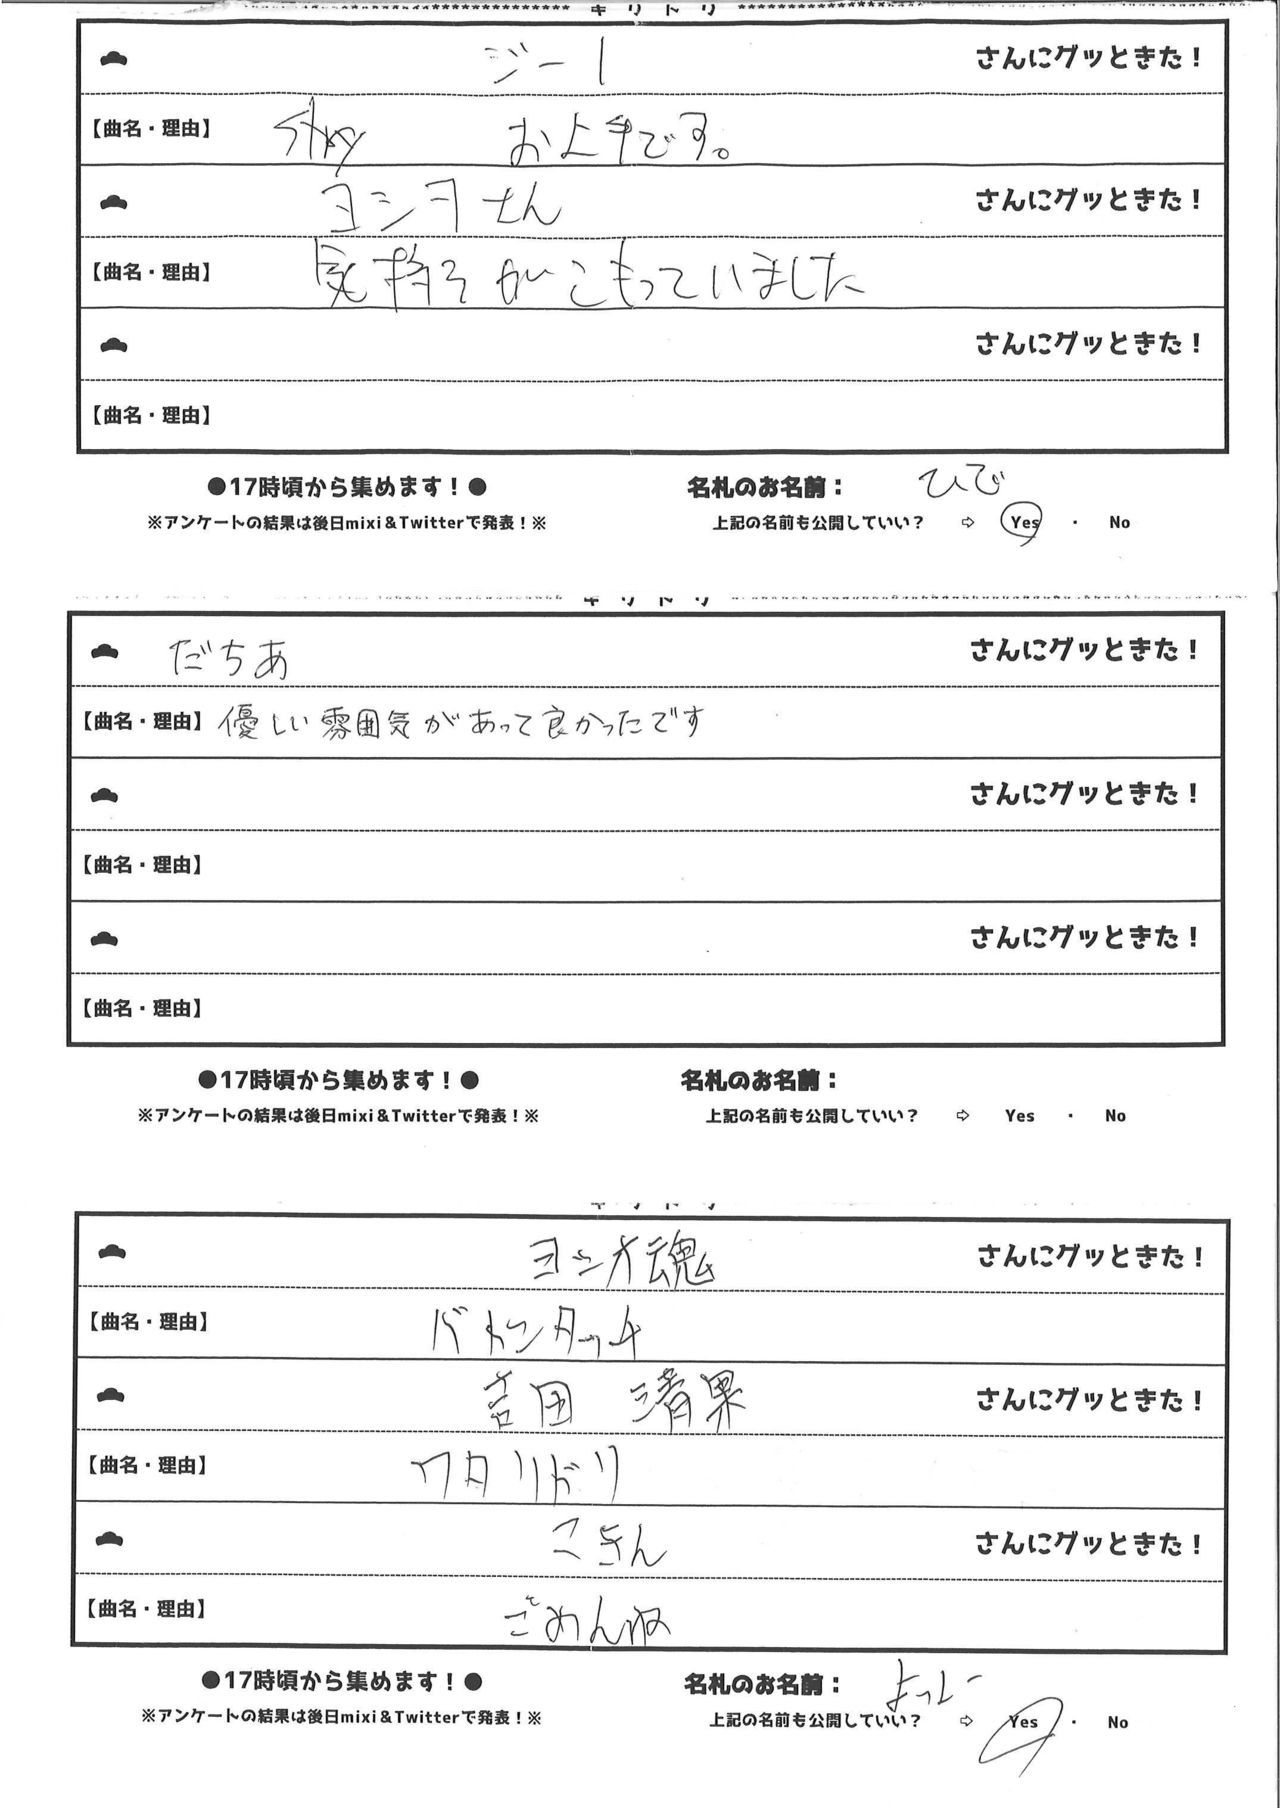 キリトリ
ジー
さんにグッときた！
【曲名・理由】 stay お上手です。
ヨシヲさん
さんにグッときた！
【曲名・理由】 気持ちがこもっていました
さんにグッときた！
【曲名・理由】
●17時頃から集めます！● 名札のお名前： ひで
※アンケートの結果は後日mixi＆Twitterで発表！※ 上記の名前も公開していい？ ⇨ Yes ・ No
キリトリ
だちあ さんにグッときた！
【曲名・理由】 優しい雰囲気があって良かったです
さんにグッときた！
【曲名・理由】
さんにグッときた！
【曲名・理由】
●17時頃から集めます！● 名札のお名前：
※アンケートの結果は後日mixi＆Twitterで発表！※ 上記の名前も公開していい？ ⇨ Yes ・ No
キリトリ
ヨシオ魂 さんにグッときた！
【曲名・理由】 バトンタッチ
吉田 清果 さんにグッときた！
【曲名・理由】 ワタリドリ
こきん さんにグッときた！
【曲名・理由】 ごめんね
●17時頃から集めます！● 名札のお名前： よっしー
※アンケートの結果は後日mixi＆Twitterで発表！※ 上記の名前も公開していい？ ⇨ Yes ・ No